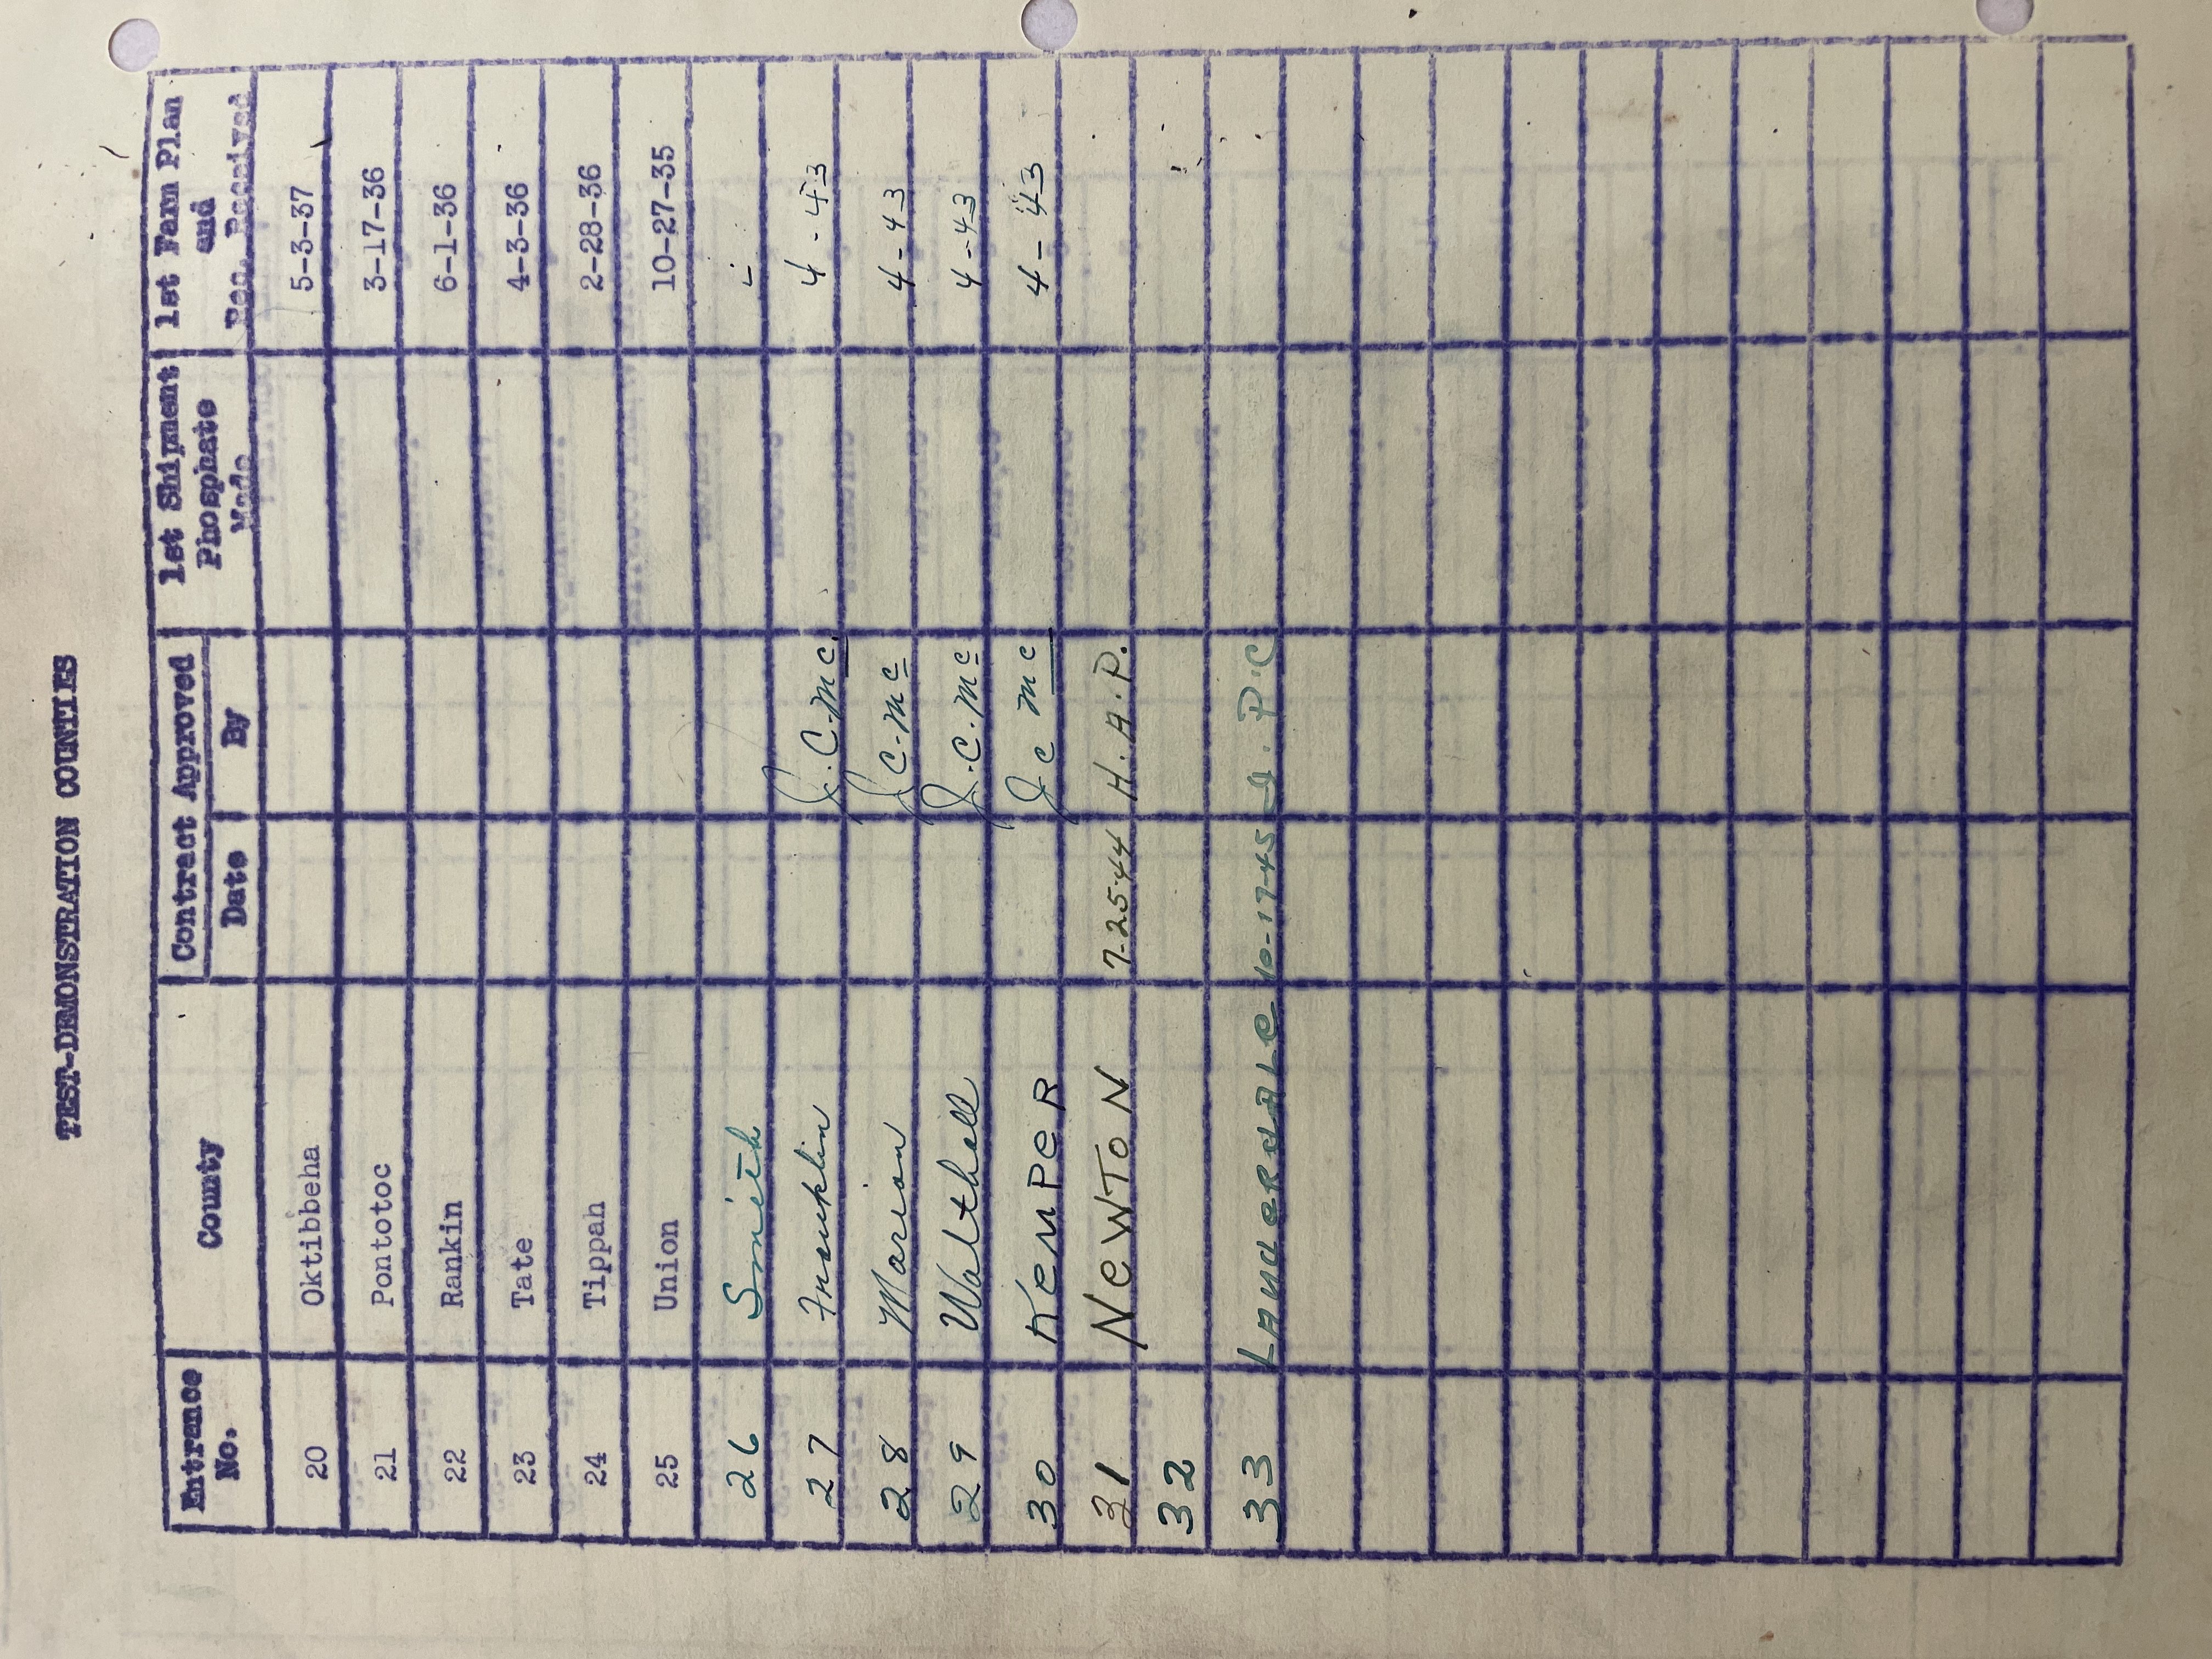 TEST-DEMONSTRATION COUNTIES
Entrance No. County Contract Approved Date By 1st Shipment Phosphate Made 1st Farm Plan and Req. Received
20 Oktibbeha 5-3-37
21 Pontotoc 3-17-36
22 Rankin 6-1-36
23 Tate 4-3-36
24 Tippah 2-28-36
25 Union 10-27-35
26 Smith
27 Franklin J.C.Mc. 4-43
28 Marion J C-Mc 4-43
29 Walthall J.C.Mc 4-43
30 KeMPeR J c Mc 4-43
31 NeWToN 7-25-44 H.A.P.
32
33 LAUdeRdALe 10-17-45 P.C